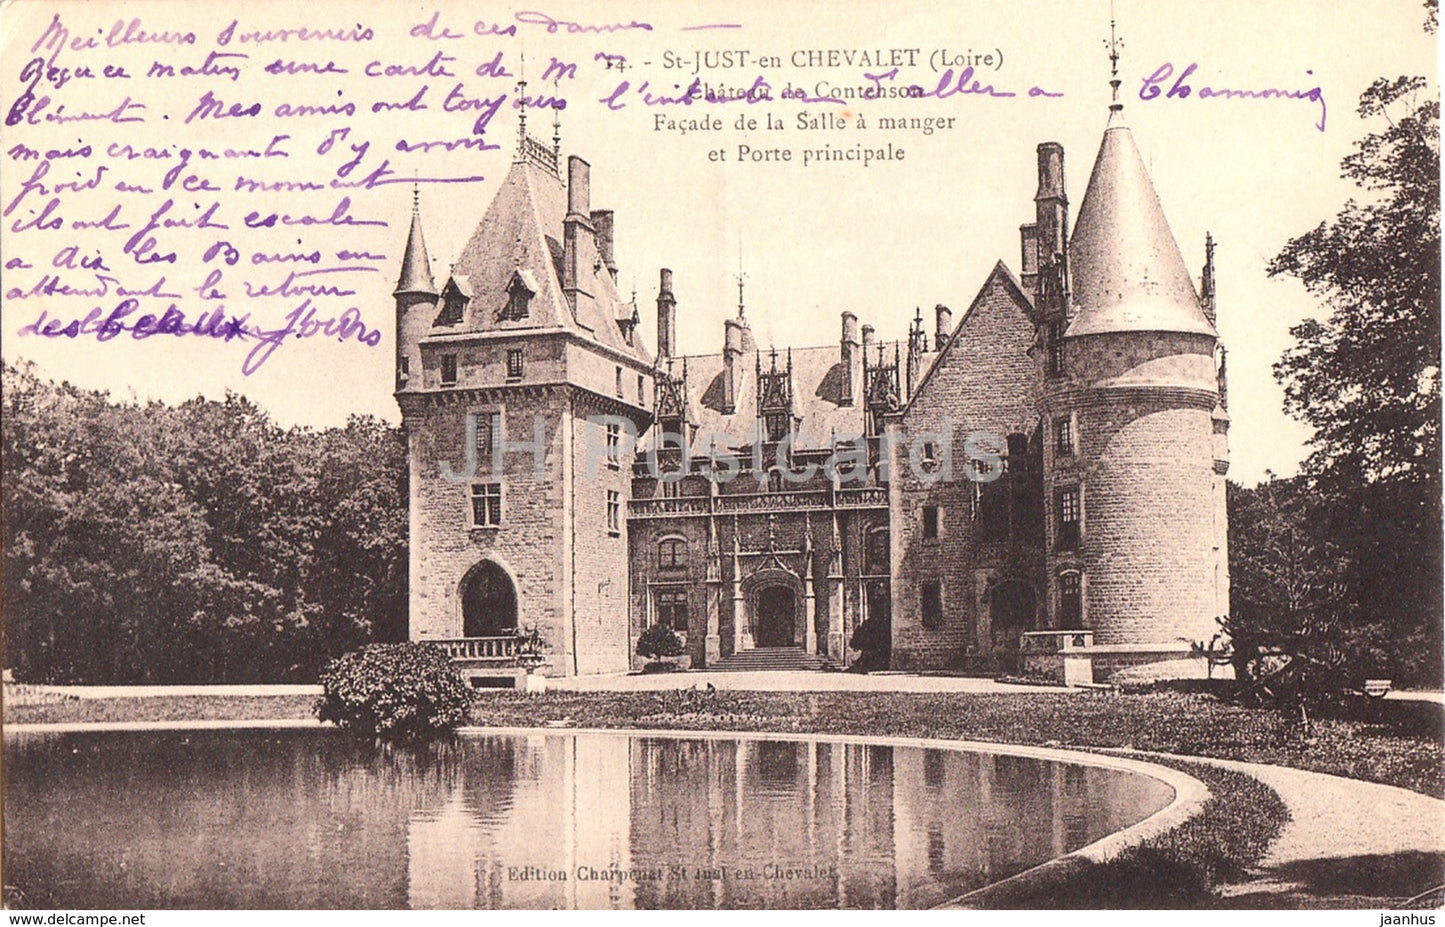 Meilleurs Souvenirs de ces dames —
Reçu ce matin une carte de Mme
Clément. Mes amis ont toujours l'intention d'aller a Chamonix
mais craignant d'y avoir
froid en ce moment —
ils ont fait escale
a Aix les Bains en
attendant le retour
des beaux jours
14. - St-JUST-en CHEVALET (Loire)
Château de Contenson
Façade de la Salle à manger
et Porte principale
JH Postcards
Edition Charpenat St Just en-Chevalet
jh-postcards.com
jaanhus